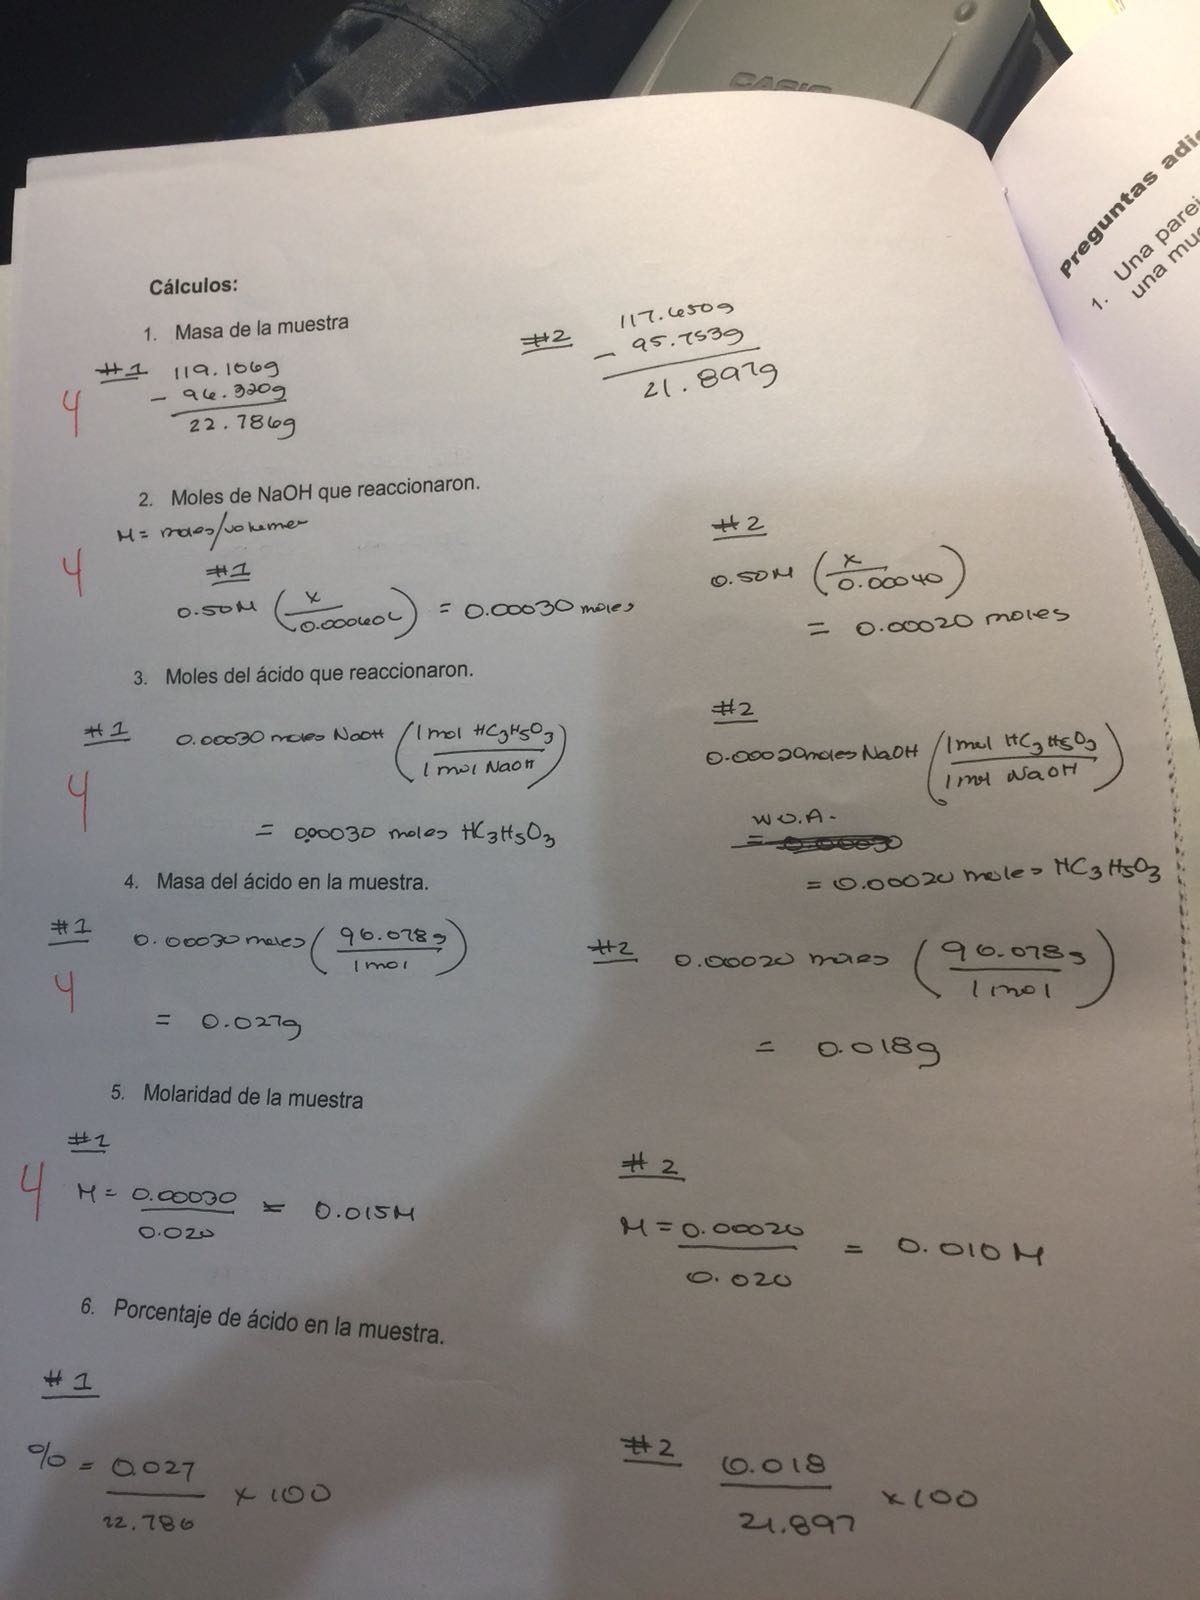 CASIO
Preguntas adi
1. Una parej
una mue
Cálculos:
1. Masa de la muestra
#1 119.106g
- 96.320g
22.786g
#2 117.650g
- 95.753g
21.897g
4
2. Moles de NaOH que reaccionaron.
M = moles/volumen
4
#1
0.50M (x / 0.00060L) = 0.00030 moles
#2
0.50M (x / 0.00040)
= 0.00020 moles
3. Moles del ácido que reaccionaron.
#1 0.00030 moles NaOH (1mol HC3H5O3 / 1mol NaOH)
4
= 0.00030 moles HC3H5O3
#2
0.00020moles NaOH (1mol HC3H5O3 / 1mol NaOH)
W.O.A.
= 0.00030
= 0.00020 moles HC3H5O3
4. Masa del ácido en la muestra.
#1 0.00030 moles (90.078g / 1mol)
4
= 0.027g
#2 0.00020 moles (90.078g / 1mol)
= 0.018g
5. Molaridad de la muestra
#1
4
M = 0.00030 / 0.020 = 0.015M
#2
M = 0.00020 / 0.020 = 0.010M
6. Porcentaje de ácido en la muestra.
#1
% = 0.027 / 22.786 x 100
#2 0.018 / 21.897 x100